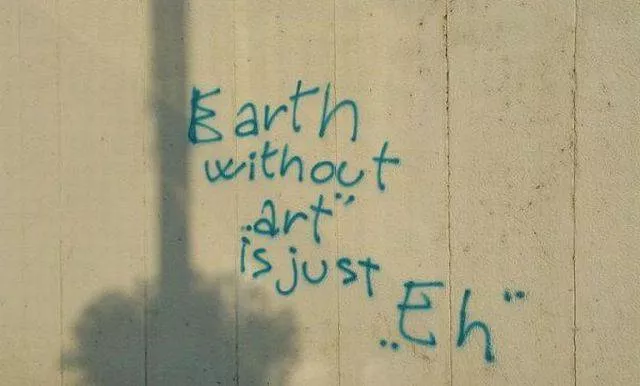 Earth
without
„art”
is just
„Eh”